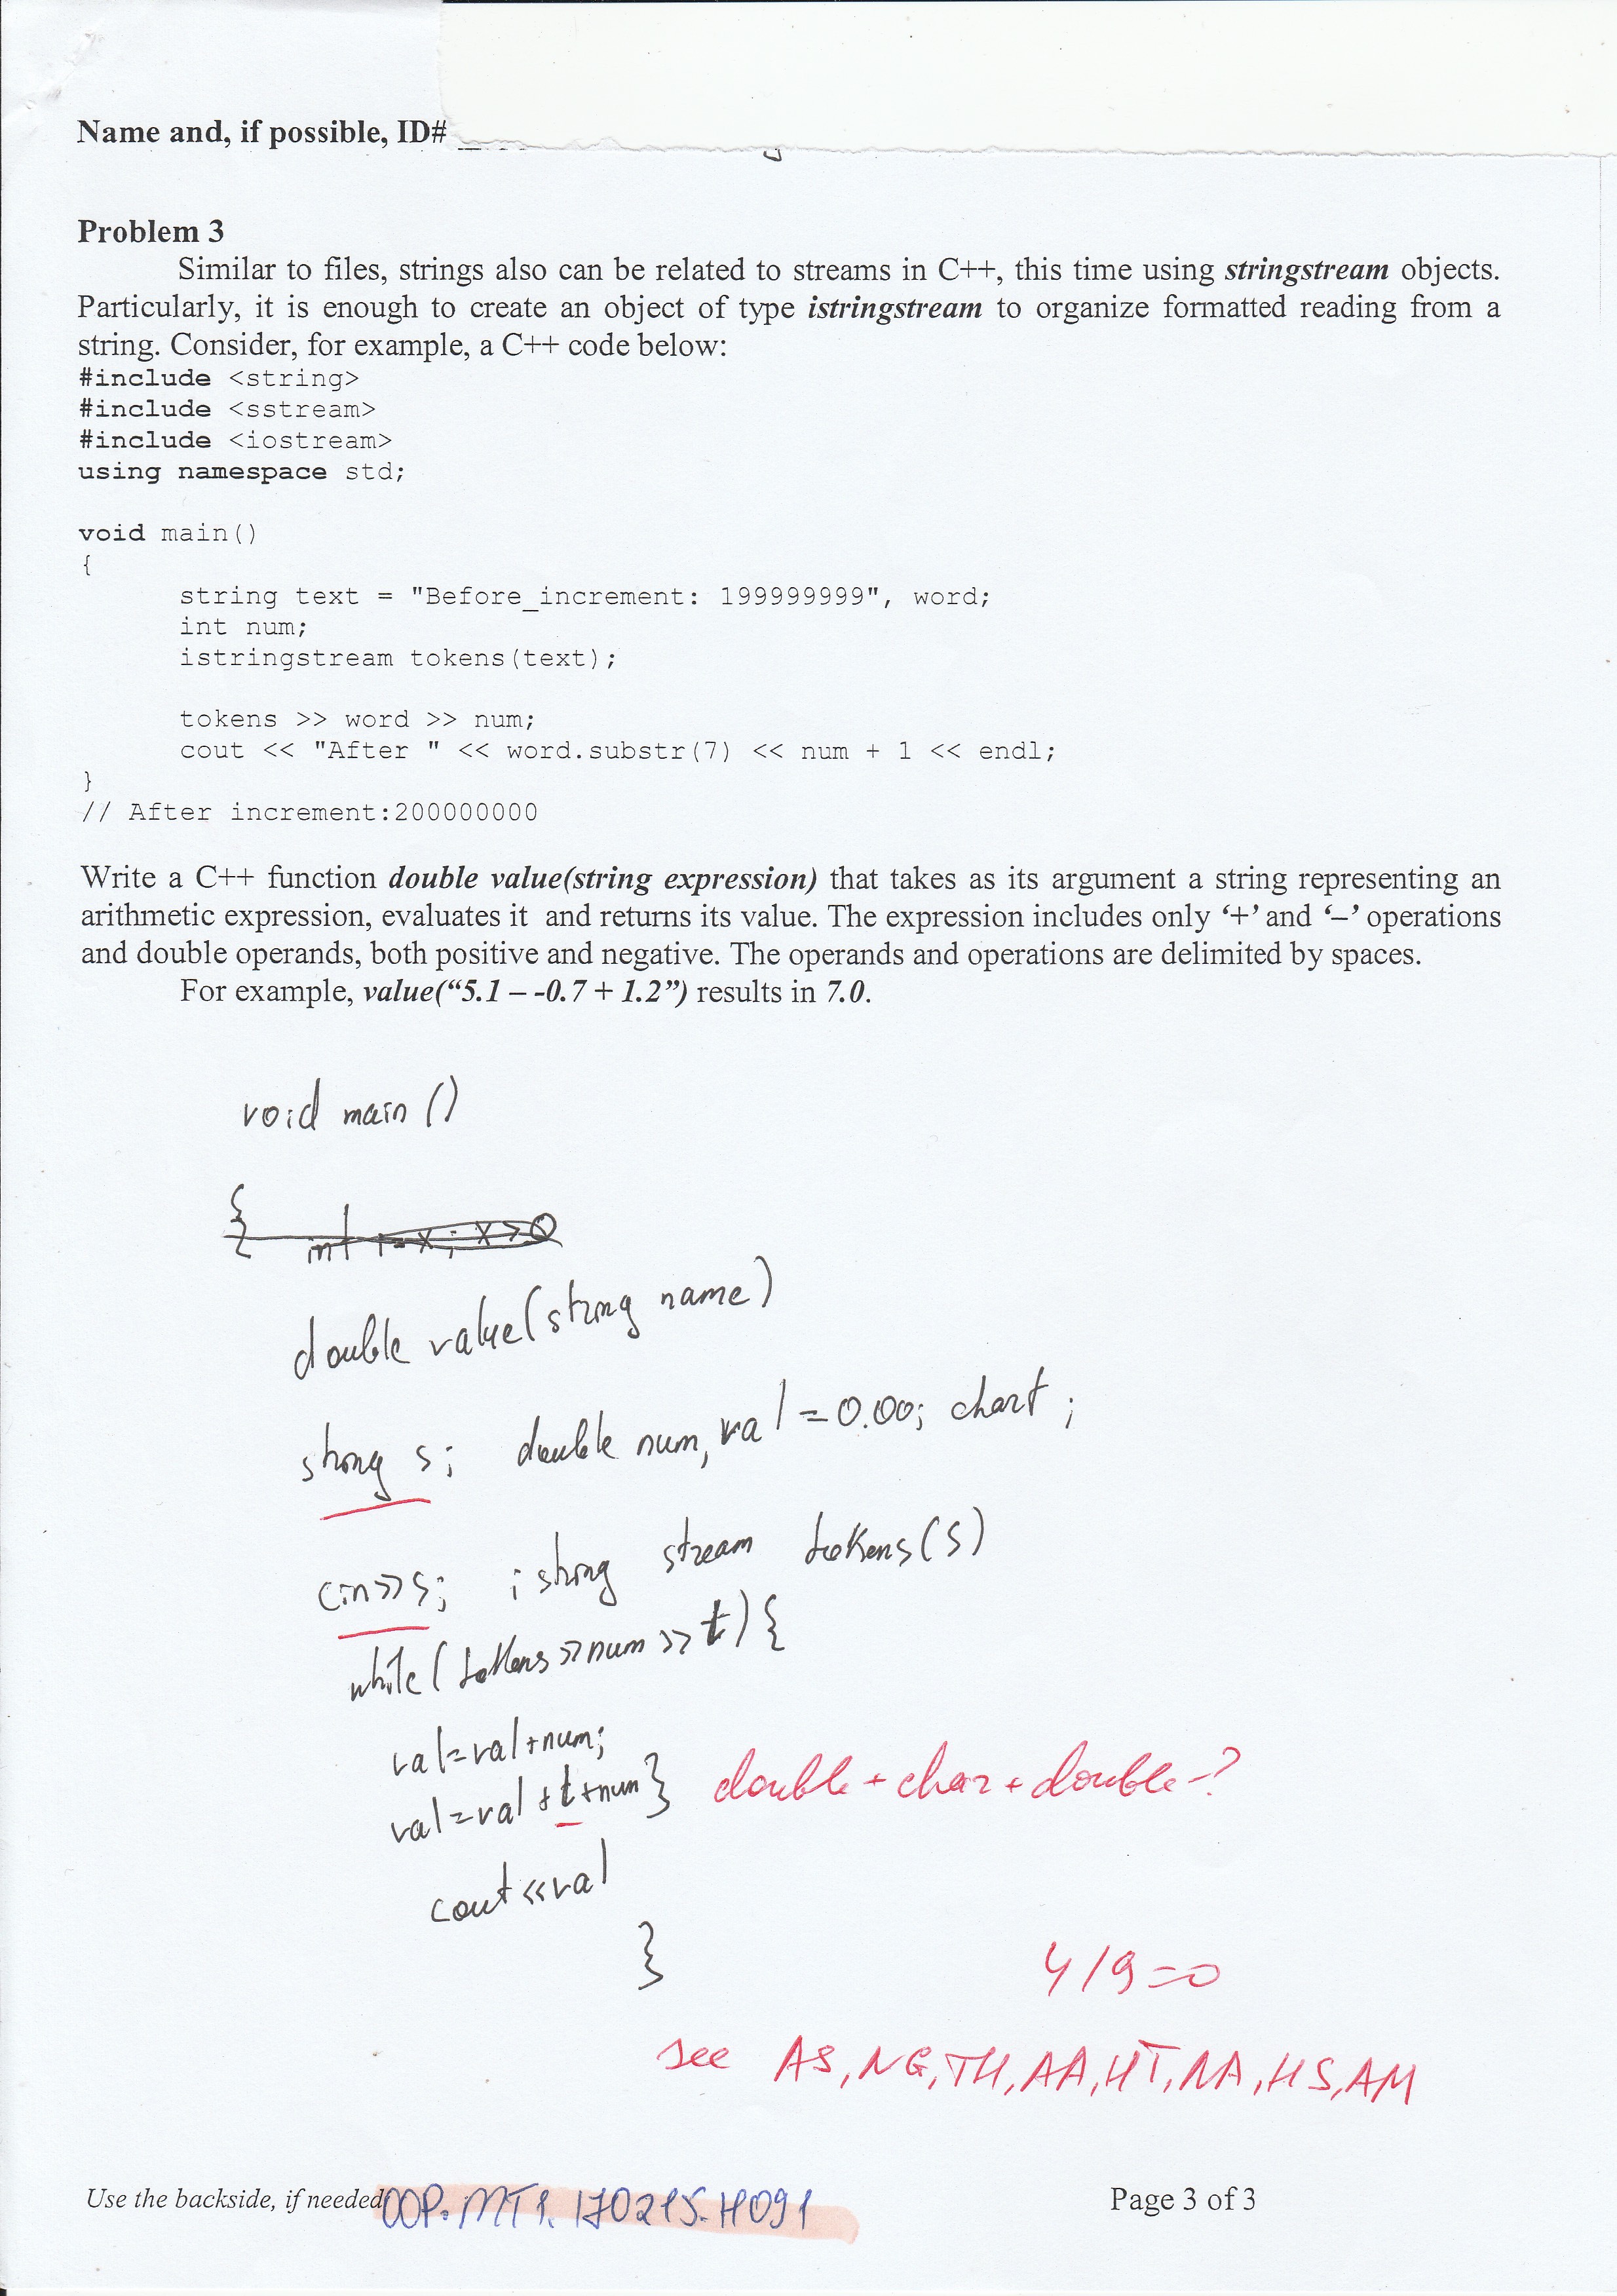 Name and, if possible, ID#
Problem 3
Similar to files, strings also can be related to streams in C++, this time using stringstream objects.
Particularly, it is enough to create an object of type istringstream to organize formatted reading from a
string. Consider, for example, a C++ code below:
#include <string>
#include <sstream>
#include <iostream>
using namespace std;
void main()
{
string text = "Before_increment: 199999999", word;
int num;
istringstream tokens(text);
tokens >> word >> num;
cout << "After " << word.substr(7) << num + 1 << endl;
}
// After increment:200000000
Write a C++ function double value(string expression) that takes as its argument a string representing an
arithmetic expression, evaluates it and returns its value. The expression includes only ‘+’ and ‘–’ operations
and double operands, both positive and negative. The operands and operations are delimited by spaces.
For example, value(“5.1 – -0.7 + 1.2”) results in 7.0.
void main ()
{ int i=x; x>0
double value(string name)
string s; double num, val=0.00; char t ;
cin>>s; istring stream tokens(s)
while(tokens>>num>>t){
val=val+num;
val=val+t+num} double+char+double-?
cout<<val
}
4/9=0
see AS,NG,TH,AA,HT,NA,HS,AM
Use the backside, if needed OOP.MT1.170215.H091 Page 3 of 3